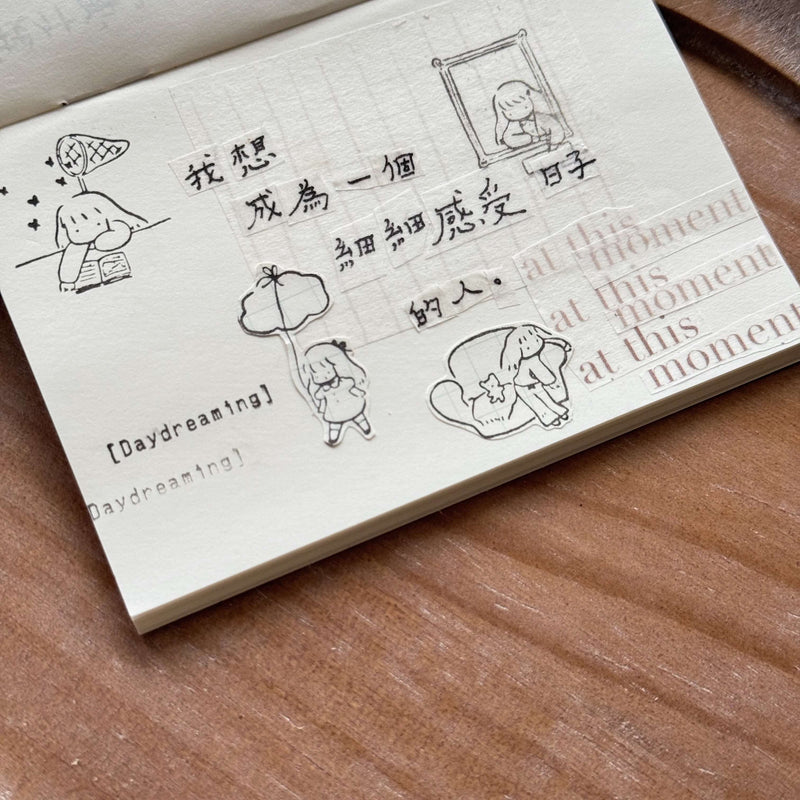 我想
成為一個
細細感受日子
的人。
at this moment
at this moment
at this moment
[Daydreaming]
Daydreaming]